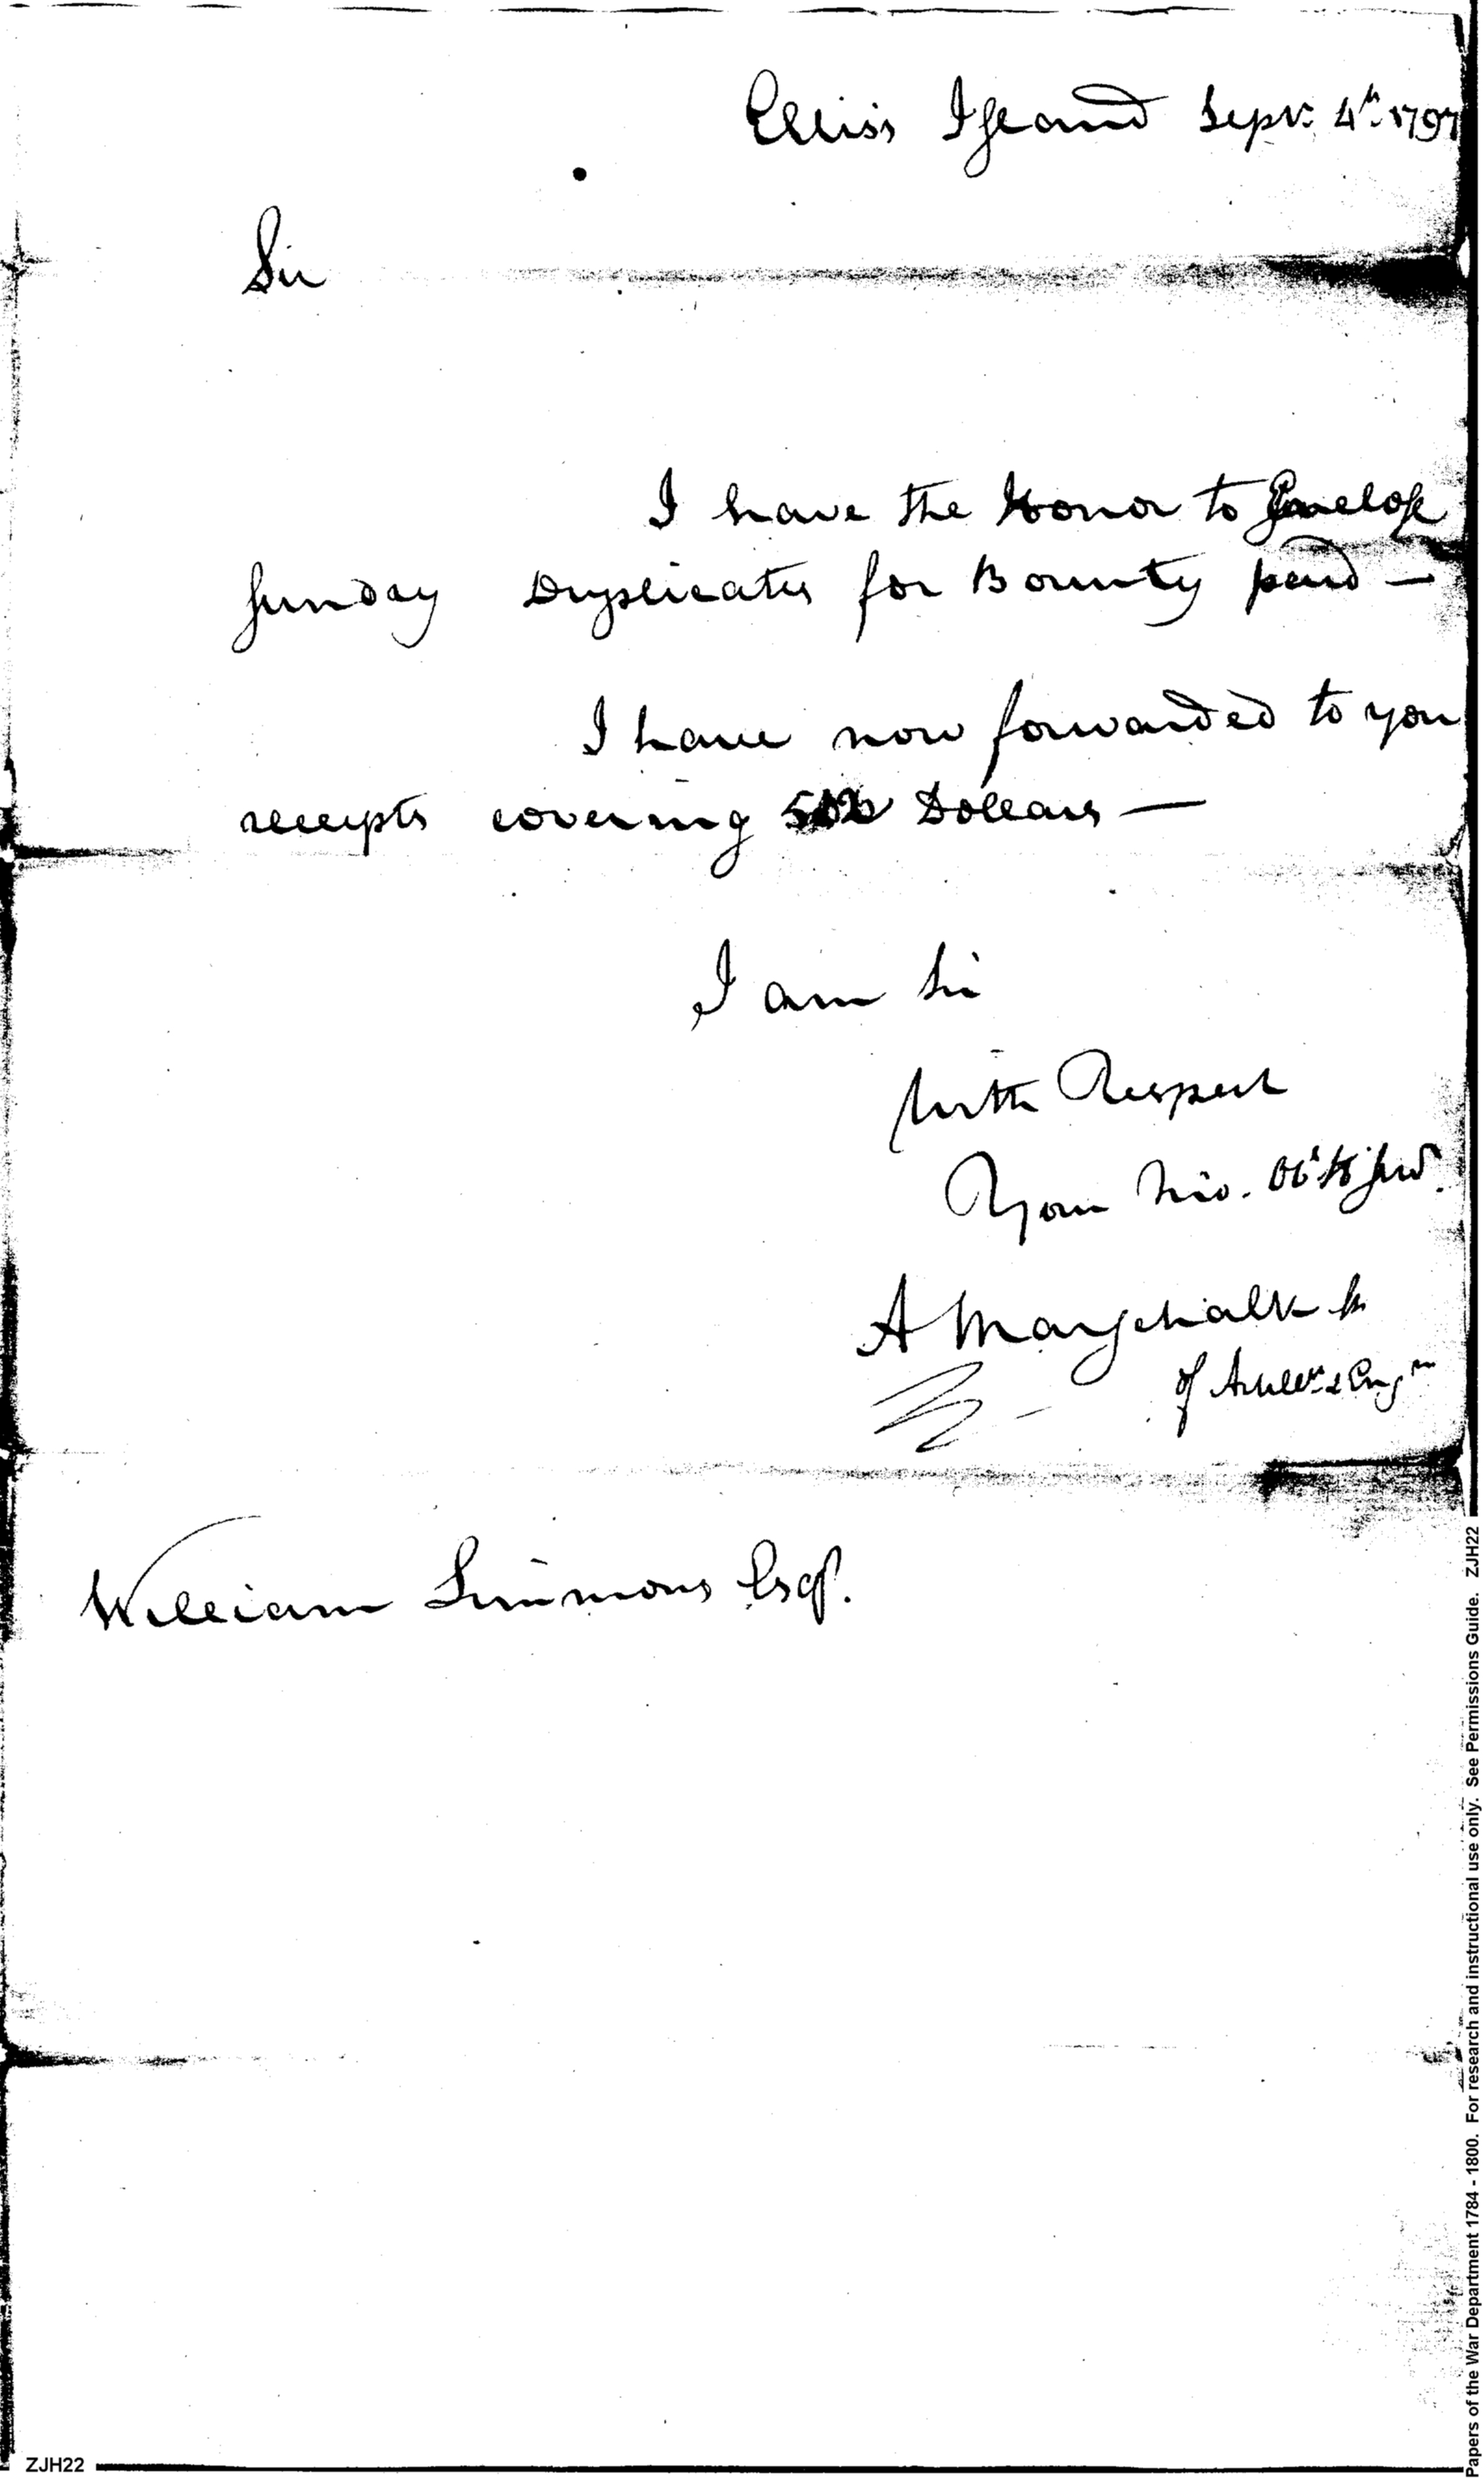 Ellis's Island Sepr: 4th 1797
Sir
I have the Honor to Envelope
sunday Duplicates for Bounty paid —
I have now forwarded to you
receipts covering Dollars —
I am Sir
With Respect
Your Mo. Obt Hb Servt.
A Marschalk
of Artillts & Engrs
William Simmons Esqr.
ZJH22
Papers of the War Department 1784 - 1800. For research and instructional use only. See Permissions Guide. ZJH22